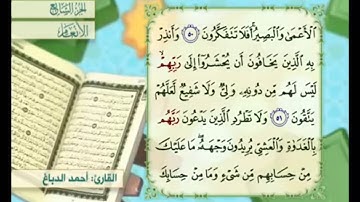 الجزء السابع
الأنعام
ٱلْأَعْمَىٰ وَٱلْبَصِيرُ أَفَلَا تَتَفَكَّرُونَ ٥٠ وَأَنذِرْ
بِهِ ٱلَّذِينَ يَخَافُونَ أَن يُحْشَرُوٓا۟ إِلَىٰ رَبِّهِمْ
لَيْسَ لَهُم مِّن دُونِهِۦ وَلِىٌّ وَلَا شَفِيعٌ لَّعَلَّهُمْ
يَتَّقُونَ ٥١ وَلَا تَطْرُدِ ٱلَّذِينَ يَدْعُونَ رَبَّهُم
بِٱلْغَدَوٰةِ وَٱلْعَشِىِّ يُرِيدُونَ وَجْهَهُۥ مَا عَلَيْكَ
مِنْ حِسَابِهِم مِّن شَىْءٍ وَمَا مِنْ حِسَابِكَ
القارئ: أحمد الدباغ